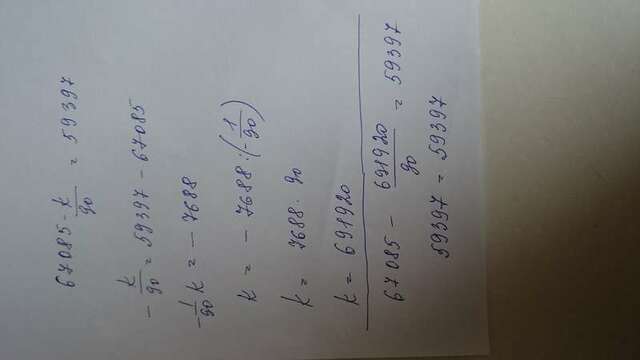 67085 - k/90 = 59397
- k/90 = 59397 - 67085
- 1/90 k = - 7688
k = - 7688 : (- 1/90)
k = 7688 · 90
k = 691920
67085 - 691920/90 = 59397
59397 = 59397